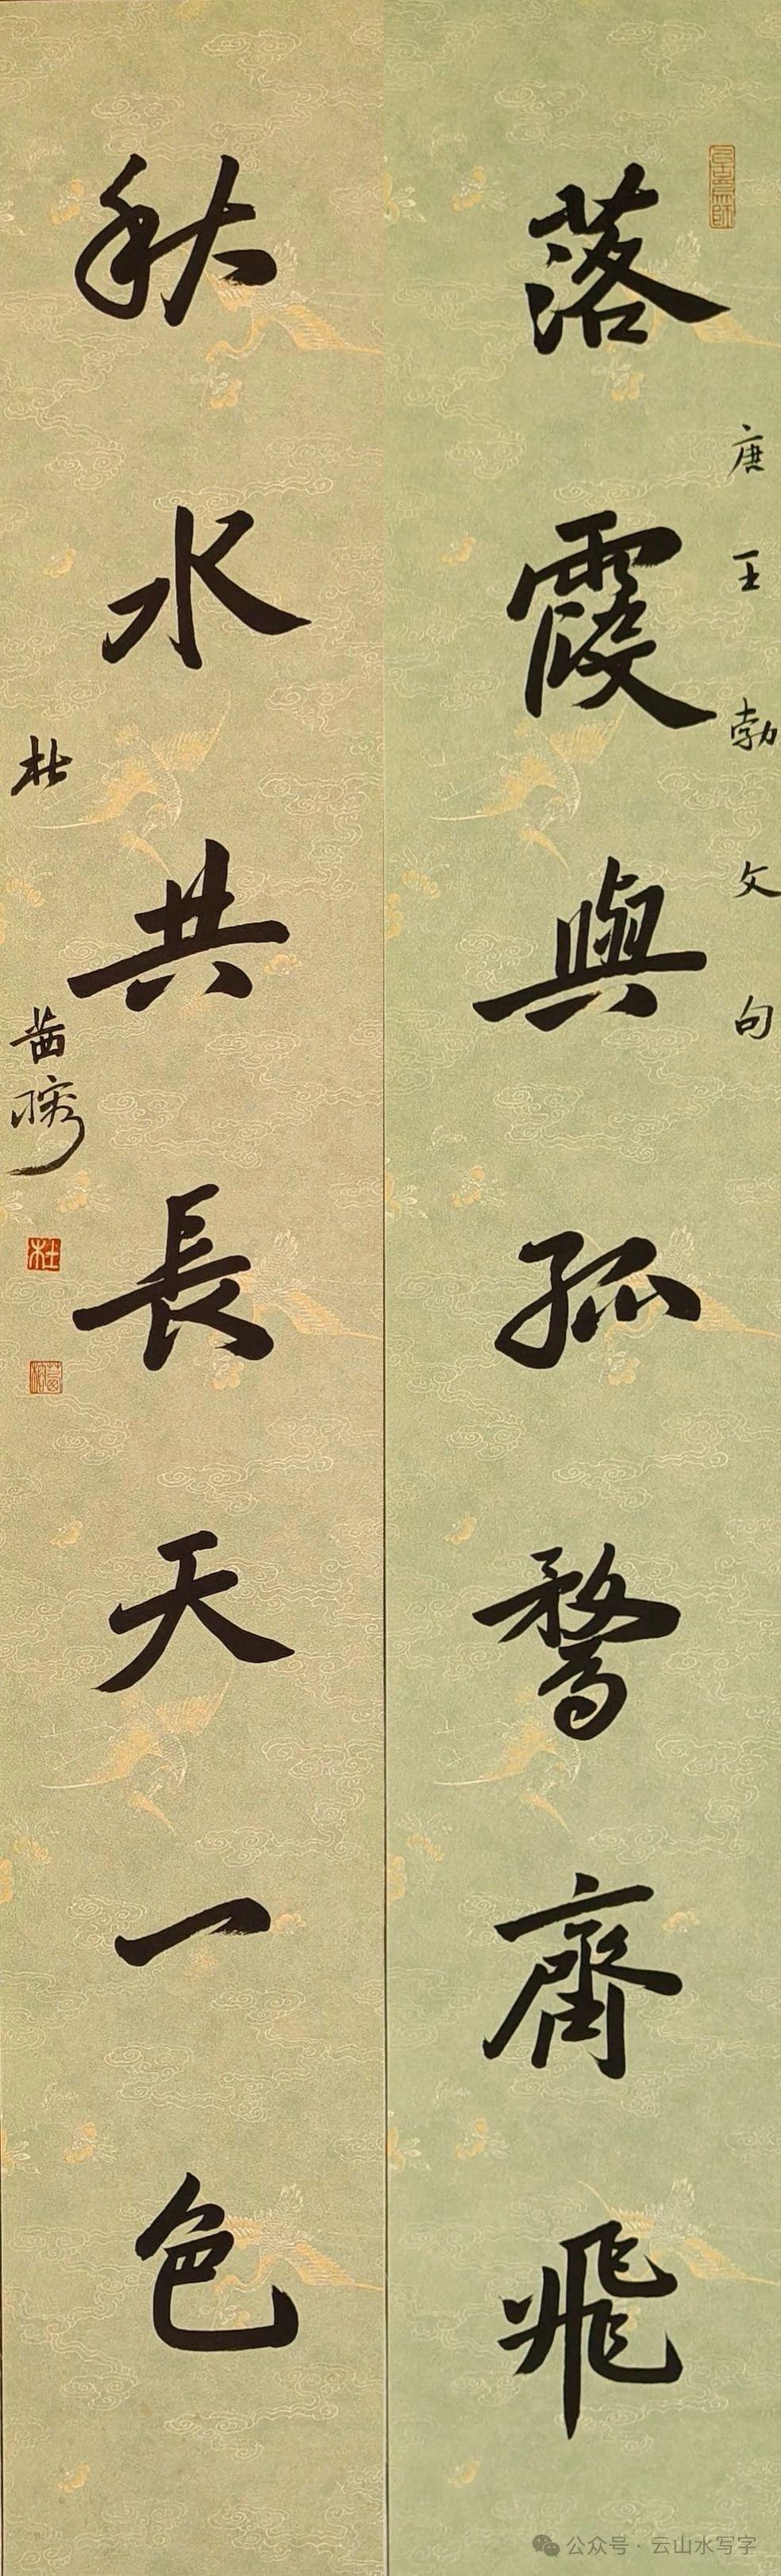 唐王勃文句
落霞與孤鶩齊飛
秋水共長天一色
杜
杜
公众号 · 云山水写字